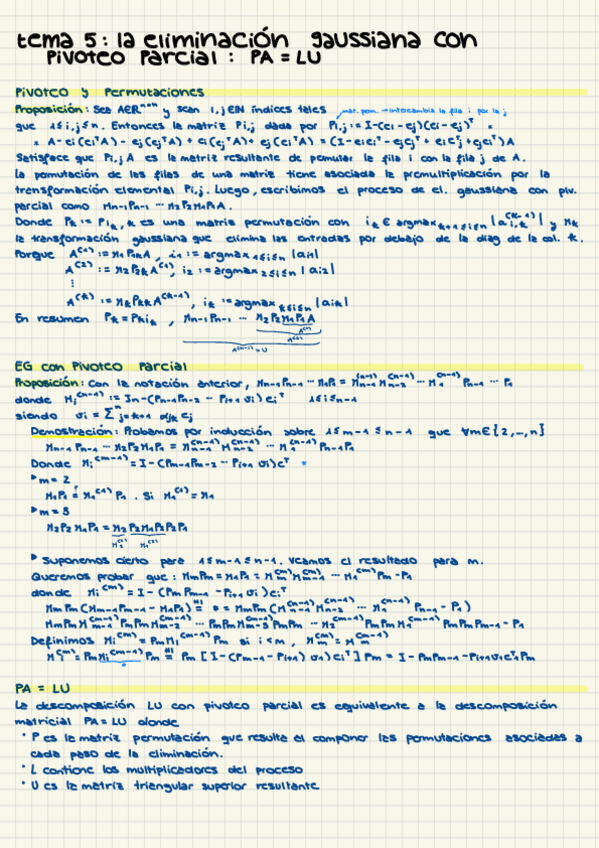 tema 5: la eliminación gaussiana con
pivoteo parcial: PA = LU
Pivoteo y Permutaciones
Proposición: Sea A∈ℝⁿˣⁿ y sean i,j∈ℕ índices tales
mat. perm → intercambia la fila i por la j
que 1≤i,j≤n. Entonces la matriz Pi,j dada por Pi,j := I-(ei-ej)(ei-ej)ᵀ
= A-ei(eiᵀA) - ej(ejᵀA) + ei(ejᵀA) + ej(eiᵀA) = (I-eieiᵀ-ejejᵀ+eiejᵀ+ejeiᵀ)A
Satisface que Pi,jA es la matriz resultante de permutar la fila i con la fila j de A.
La permutación de las filas de una matriz tiene asociada la premultiplicación por la
transformación elemental Pi,j. Luego, escribimos el proceso de el. gaussiana con piv.
parcial como Mn-1Pn-1 ... M2P2M1P1A.
Donde Pk := Pik,k es una matriz permutación con ik ∈ argmax |ai,k^(k-1)| y Mk
la transformación gaussiana que elimina las entradas por debajo de la diag de la col. k.
Porque A^(1) := M1P1A, i1 := argmax 1≤i≤n |ai1|
A^(2) := M2P2A^(1), i2 := argmax 2≤i≤n |ai2|
⋮
A^(k) := MkPkA^(k-1), ik := argmax k≤i≤n |aik|
En resumen Pk = Pkik, Mn-1Pn-1 ... M2P2M1P1A
A^(1)
A^(2)
A^(n-1) = U
EG con Pivoteo Parcial
Proposición: Con la notación anterior, Mn-1Pn-1 ... M1P1 = Mn-1^(n-1) Mn-2^(n-1) ... M1^(n-1) Pn-1 ... P1
donde Mi^(n-1) := In-(Pn-1Pn-2 ... Pi+1 vi) eiᵀ 1≤i≤n-1
siendo vi = Σⁿ j=i+1 αji ej
Demostración: Probamos por inducción sobre 1≤m-1≤n-1 que ∀m∈{2,...,n}
Mm-1Pm-1 ... M2P2M1P1 = Mm-1^(m-1) Mm-2^(m-1) ... M1^(m-1) Pm-1 P1
Donde Mi^(m-1) = I-(Pm-1Pm-2 ... Pi+1 vi)eiᵀ *
▸ m = 2
M1P1 = M1^(1) P1. Si M1^(1) = M1
▸ m = 3
M2P2M1P1 = M2 P2M1P2P2P1
M2^(2) M1^(2)
▸ Suponemos cierto para 1≤m-1≤n-1. Veamos el resultado para m.
Queremos probar que: MmPm ... M1P1 = Mm^(m) Mm-1^(m) ... M1^(m) Pm ... P1
donde Mi^(m) = I-(PmPm-1 ... Pi+1 vi)eiᵀ
MmPm(Mm-1Pm-1 ... M1P1) = MmPm(Mm-1^(m-1) Mm-2^(m-1) ... M1^(m-1) Pm-1 ... P1)
MmPmMm-1^(m-1)PmPmMm-2^(m-1) ... PmPmM2^(m-1)PmPmM1^(m-1)PmPmPm-1 ... P1
Definimos Mi^(m) = PmMi^(m-1)Pm si i<m, Mm^(m) = Mm
Mi^(m) = PmMi^(m-1)Pm = Pm [I-(Pm-1 ... Pi+1 vi)eiᵀ] Pm = I-PmPm-1 ... Pi+1 vi eiᵀPm
PA = LU
La descomposición LU con pivoteo parcial es equivalente a la descomposición
matricial PA = LU donde
• P es la matriz permutación que resulta al componer las permutaciones asociadas a
cada paso de la eliminación.
• L contiene los multiplicadores del proceso
• U es la matriz triangular superior resultante